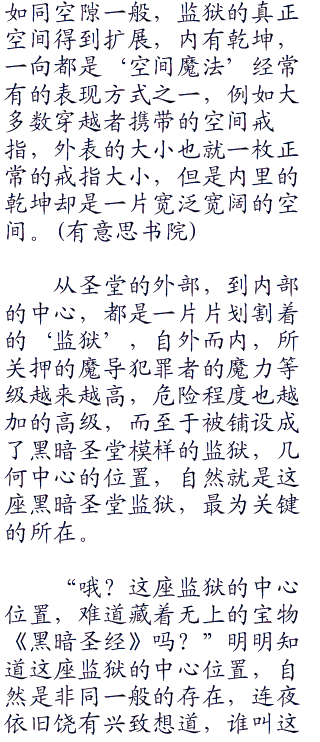 如同空隙一般，监狱的真正
空间得到扩展，内有乾坤，
一向都是‘空间魔法’经常
有的表现方式之一，例如大
多数穿越者携带的空间戒
指，外表的大小也就一枚正
常的戒指大小，但是内里的
乾坤却是一片宽泛宽阔的空
间。(有意思书院)
从圣堂的外部，到内部
的中心，都是一片片划割着
的‘监狱’，自外而内，所
关押的魔导犯罪者的魔力等
级越来越高，危险程度也越
加的高级，而至于被铺设成
了黑暗圣堂模样的监狱，几
何中心的位置，自然就是这
座黑暗圣堂监狱，最为关键
的所在。
“哦？这座监狱的中心
位置，难道藏着无上的宝物
《黑暗圣经》吗？”明明知
道这座监狱的中心位置，自
然是非同一般的存在，连夜
依旧饶有兴致想道，谁叫这